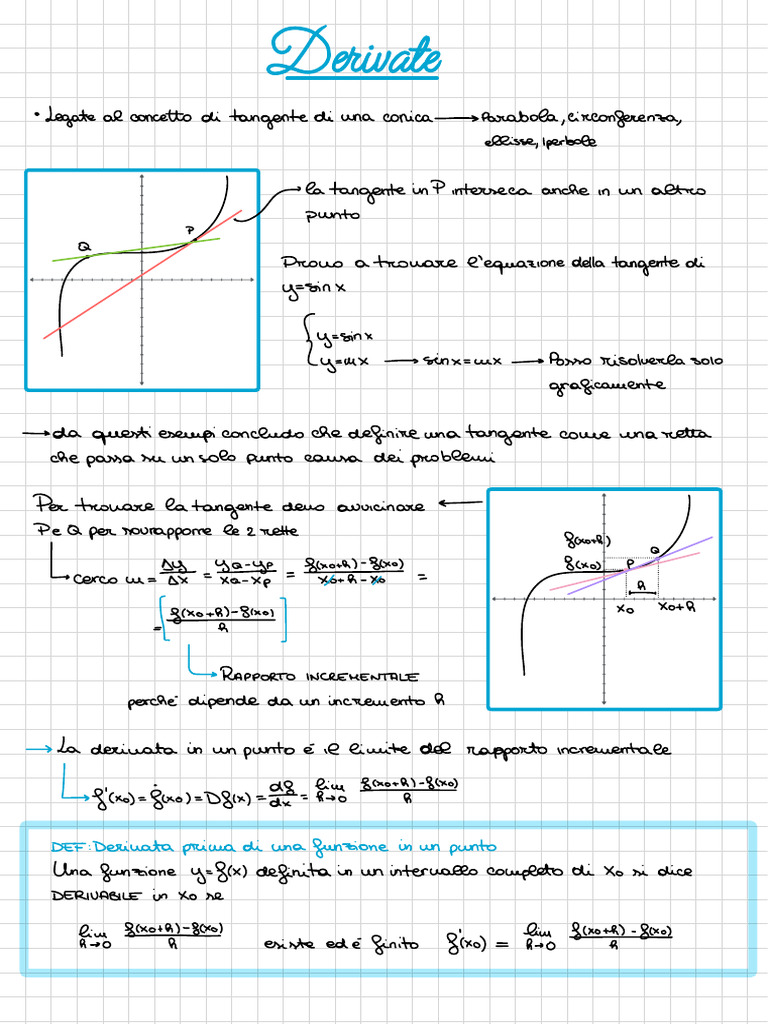 Derivate
• Legate al concetto di tangente di una conica → Parabola, circonferenza,
ellisse, iperbole
Q
P
la tangente in P interseca anche in un altro
punto
Provo a trovare l'equazione della tangente di
y=sin x
{ y=sin x
y=mx → sin x=mx → Posso risolverla solo
graficamente
→ da questi esempi concludo che definire una tangente come una retta
che passa su un solo punto causa dei problemi
Per trovare la tangente devo avvicinare
P e Q per sovrapporre le 2 rette
cerco m = Δy/Δx = (yQ-yP)/(xQ-xP) = (f(x0+h)-f(x0))/(x0+h-x0) =
= [(f(x0+h)-f(x0))/h]
RAPPORTO INCREMENTALE
perché dipende da un incremento h
f(x0+h)
f(x0)
P
Q
h
x0
x0+h
→ La derivata in un punto é il limite del rapporto incrementale
f'(x0) = ḟ(x0) = Df(x) = df/dx = lim h→0 (f(x0+h)-f(x0))/h
DEF: Derivata prima di una funzione in un punto
Una funzione y=f(x) definita in un intervallo completo di x0 si dice
DERIVABILE in x0 se
lim h→0 (f(x0+h)-f(x0))/h esiste ed é finito f'(x0) = lim h→0 (f(x0+h)-f(x0))/h